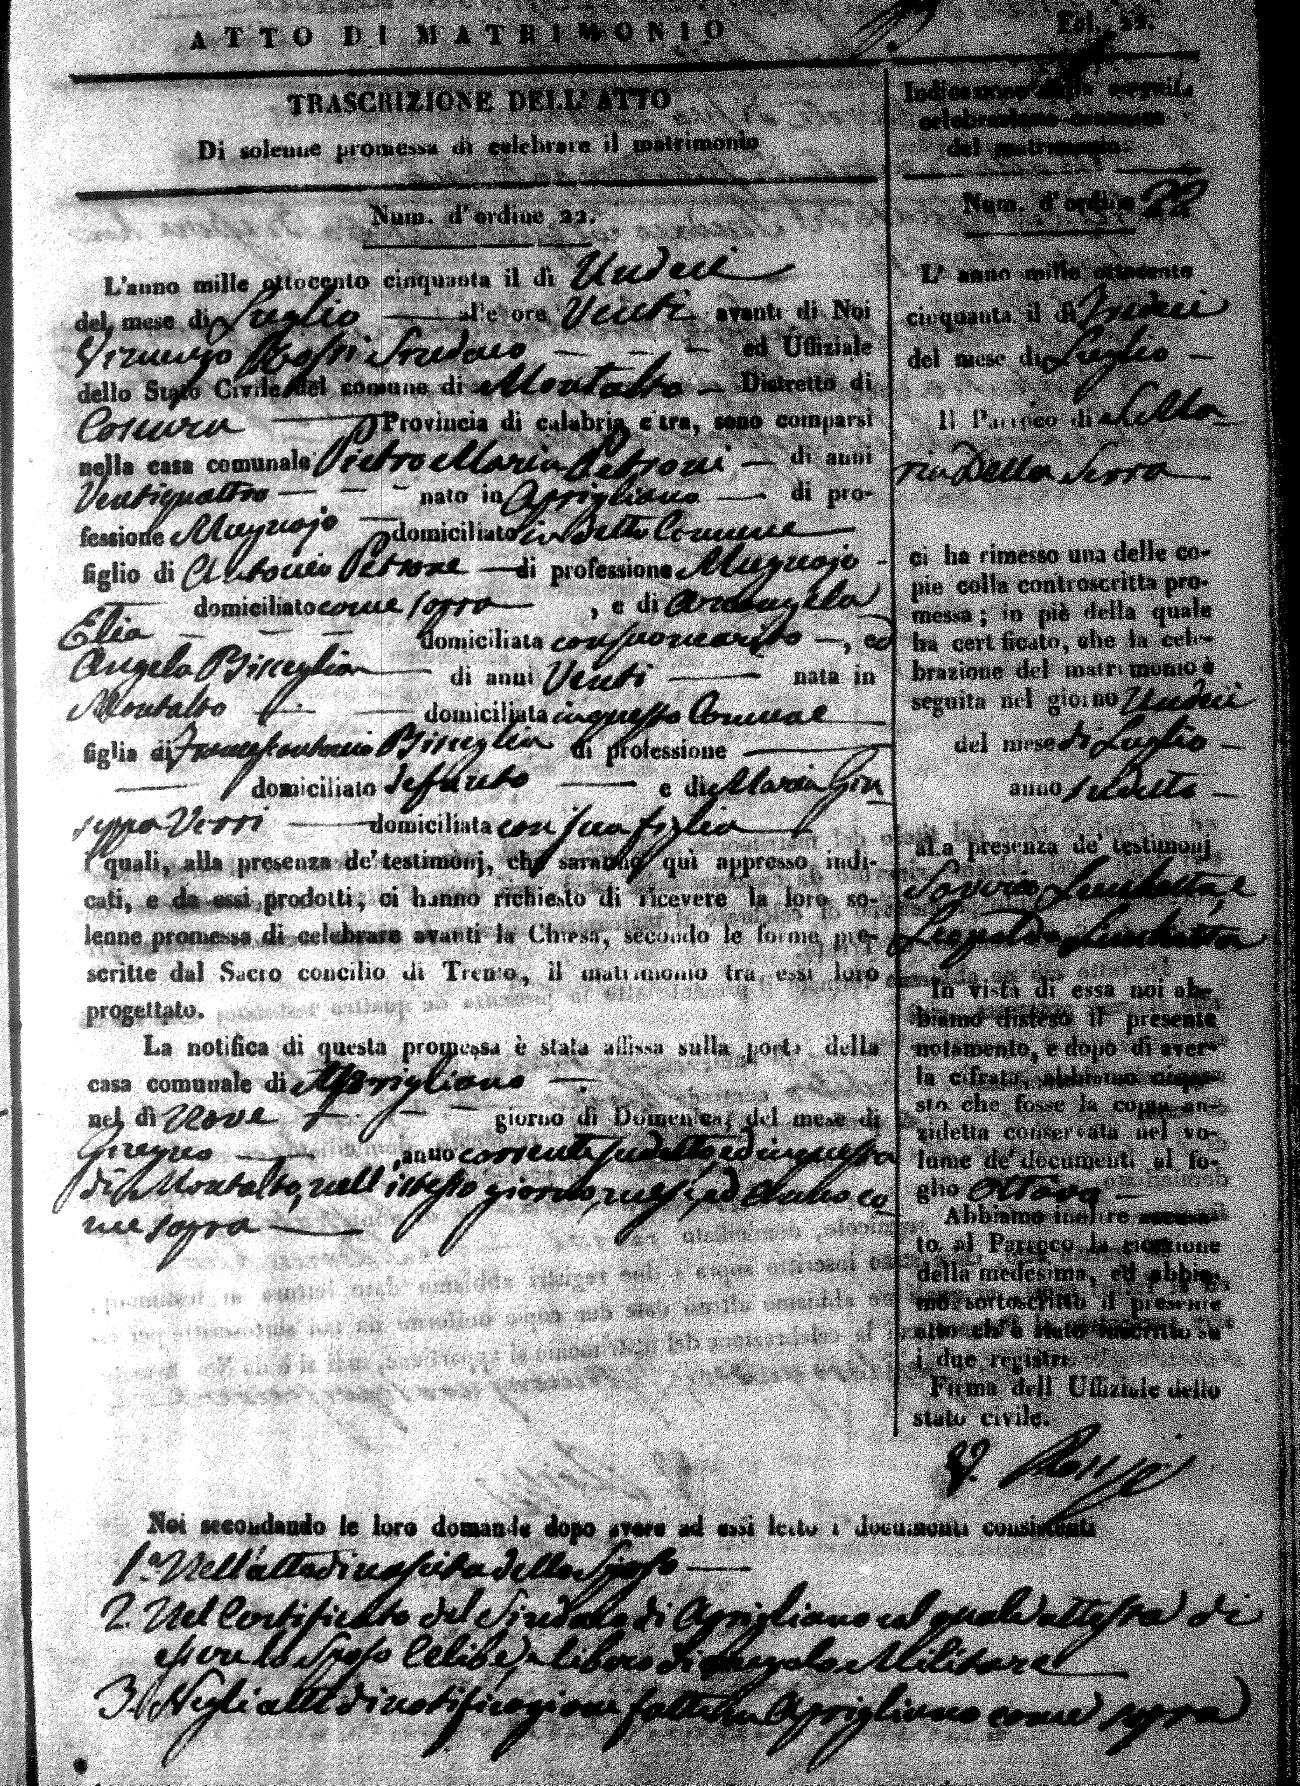 ATTO DI MATRIMONIO
Fol. 22.
TRASCRIZIONE DELL'ATTO
Di solenne promessa di celebrare il matrimonio
Num. d'ordine 22.
L'anno mille ottocento cinquanta il dì Undeci
del mese di Luglio — alle ore Venti avanti di Noi
Rossi Sindaco — — — ed Uffiziale
dello Stato Civile del comune di Montalto — Distretto di
Cosenza — Provincia di calabria citra, sono comparsi
nella casa comunale Pietro Maria Petrone — di anni
Ventiquattro — — — nato in Aprigliano — di pro-
fessione Mugnajo — domiciliato in Detto Comune —
figlio di Antonio Petrone — di professione Mugnajo —
domiciliato come sopra — , e di Arcangela
Elia — — — domiciliata con suo marito —, ed
Angela Bisceglia — di anni Venti — nata in
Montalto — — domiciliata in questo Comune —
figlia di Francescantonio Bisceglia di professione —
— domiciliato defunto — e di Maria Giu
seppa Verri — domiciliata con sua figlia —
I quali, alla presenza de' testimonj, che saranno qui appresso indi-
cati, e da essi prodotti, ci hanno richiesto di ricevere la loro so-
lenne promessa di celebrare avanti la Chiesa, secondo le forme pre-
scritte dal Sacro concilio di Trento, il matrimonio tra essi loro
progettato.
La notifica di questa promessa è stata affissa sulla porta della
casa comunale di Aprigliano —
nel dì Nove — — — giorno di Domenica, del mese di
Giugno — , anno corrente sudetto, ed in questa
di Montalto, nell'istesso giorno, mese, ed anno co
me sopra —
Indicazione della seguita
celebrazione canonica
del matrimonio.
Num. d'ordine 22
L'anno mille ottocento
cinquanta il dì Undeci
del mese di Luglio —
Il Parroco di S. Ma
ria Della Serra —
ci ha rimesso una delle co-
pie colla controscritta pro-
messa; in piè della quale
ha certificato, che la cele-
brazione del matrimonio è
seguita nel giorno Undeci
del mese di Luglio —
anno sudetto —
alla presenza de' testimonj
Saverio Lucchetta, e
Leopoldo Lucchetta
In vista di essa noi ab-
biamo disteso il presente
notamento, e dopo di aver-
la cifrata, abbiamo dispo-
sto che fosse la copia an-
zidetta conservata nel vo-
lume de' documenti al fo-
glio ottavo —
Abbiamo inoltre accusa-
to al Parroco la ricezione
della medesima, ed abbia-
mo sottoscritto il presente
atto ch'è stato inscritto su'
i due registri.
Firma dell Uffiziale dello
stato civile.
V. Rossi
Noi secondando le loro domande dopo avere ad essi letto i documenti consistenti
1.° Nell'atto di nascita dello Sposo —
2. Nel Certificato del Sindaco di Aprigliano col quale attesta di
essere lo Sposo Celibe, e libero di Militare —
3. Negli atti di notificazione fatta in Aprigliano come sopra